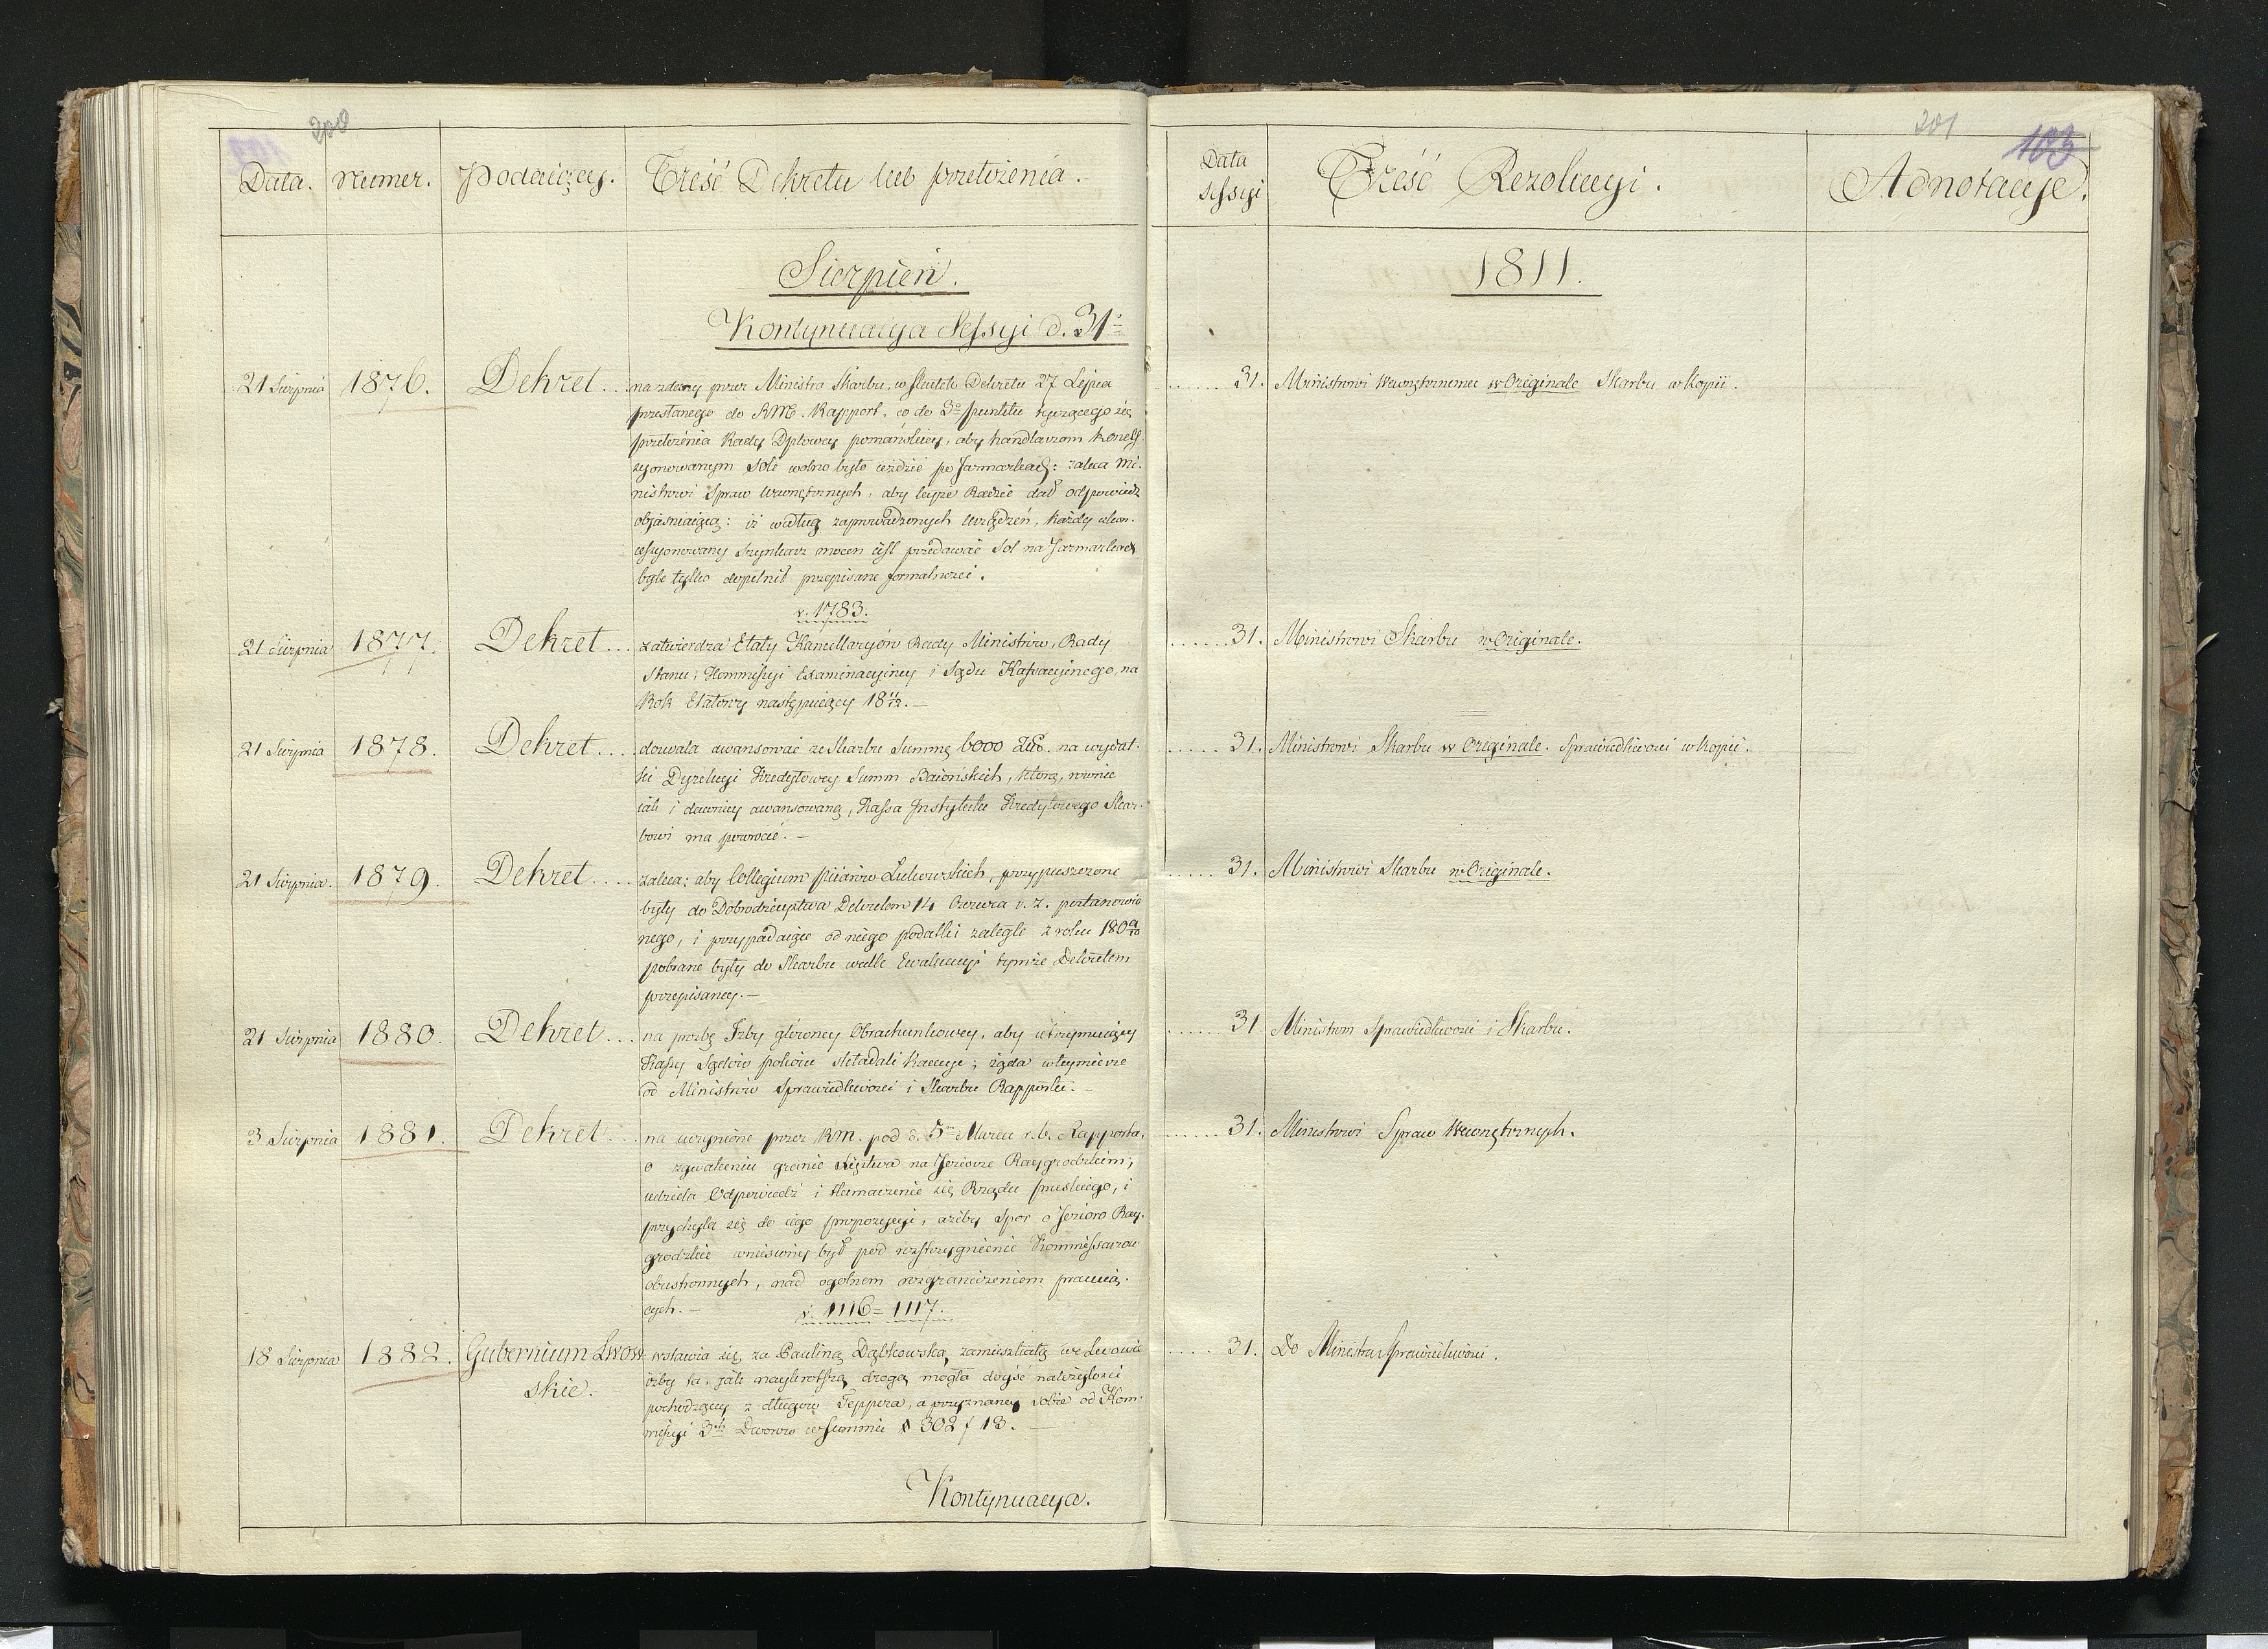 200
Data. Numer. Podaiący. Treść Dekretu lub przełożenia.
Sierpień.
Kontynuacya Sessyi d. 31º
21 Sierpnia 1876. Dekret... na zdany przez Ministra Skarbu, w skutek Dekretu 27 Lipca
przesłanego do RM. Rapport, co do 3º punktu tyczącego się
przełożenia Rady Dptowey poznańskiey, aby handlarzom konces
syonowanym Soli wolno było ieździć po Jarmarkach: zaleca Mi-
nistrowi Spraw Wewnętrznych, aby teyże Radzie dał odpowiedź
obiaśniaiącą: iż według zaprowadzonych urządzeń, każdy ukon-
cessyonowany Szynkarz mocen iest przedawać Sol na Jarmarkach
byle tylko dopełnił przepisane formalności.
v. 1783.
21 Sierpnia 1877. Dekret... zatwierdza Etaty Kancellaryów Rady Ministrów, Rady
Stanu, Kommissyi Examinacyiney i Sądu Kassacyinego, na
Rok Etatowy następuiący 18 11/12. —
21 Sierpnia 1878. Dekret... dozwala awansować ze Skarbu Summę 6000 Złł. na wydat-
ki Dyrekcyi Kredytowey Summ Baiońskich, którą, równie
iak i dawniey awansowaną, Kassa Instytutu Kredytowego Skar-
bowi ma powrócić. —
21 Sierpnia. 1879. Dekret... zaleca; aby Collegium Piiarów Łukowskich, przypuszczone
były do Dobrodzieystwa Dekretem 14 Czerwca r. z. postanowio
nego, i przypadaiące od niego podatki zaległe z roku 180 9/10
pobrane były do Skarbu wedle Ewaluacyi tymże Dekretem
przepisaney. —
21 Sierpnia 1880. Dekret... na prozbę Izby główney Obrachunkowey, aby utrzymuiący
Kassy Sądów pokoiu składali Kaucye; żąda w tey mierze
od Ministrów Sprawiedliwości i Skarbu Rapportu. —
3 Sierpnia 1881. Dekret... na uczynione przez RM. pod d. 5 Marca r. b. Rapporta,
o zgwałceniu granic Xięstwa na Jeziorze Raygrodzkim;
udziela Odpowiedź i tłumaczenie się Rządu pruskiego, i
przychyla się do iego propozycyi, ażeby Spor o Jezioro Ray-
grodzkie wniesiony był pod rozstrzygnienie Kommissarzow
obustronnych, nad ogolnem rozgraniczeniem pracuią-
cych. — v. 1116 = 1117.
18 Sierpnia 1882. Gubernium Lwow- wstawia się za Pauliną Dąbkowską, zamieszkałą we Lwowie
skie. iżby ta, iak naykrotszą drogą mogła doyść należytości
pochodzącey z długow Teppera, a przyznaney sobie od Kom-
missyi 3ch Dworow w Summie # 302 f 18. —
Kontynuacya.
201
103
Data Sessyi Treść Rezolucyi. Adnotacye.
1811.
31. Ministrowi Wewnętrznemu w Originale Skarbu w kopii.
31. Ministrowi Skarbu w Originale.
31. Ministrowi Skarbu w Originale. Sprawiedliwości w kopii.
31. Ministrowi Skarbu w Originale.
31 Ministrom Sprawiedliwości i Skarbu.
31. Ministrowi Spraw Wewnętrznych.
31. Do Ministra Sprawiedliwości.